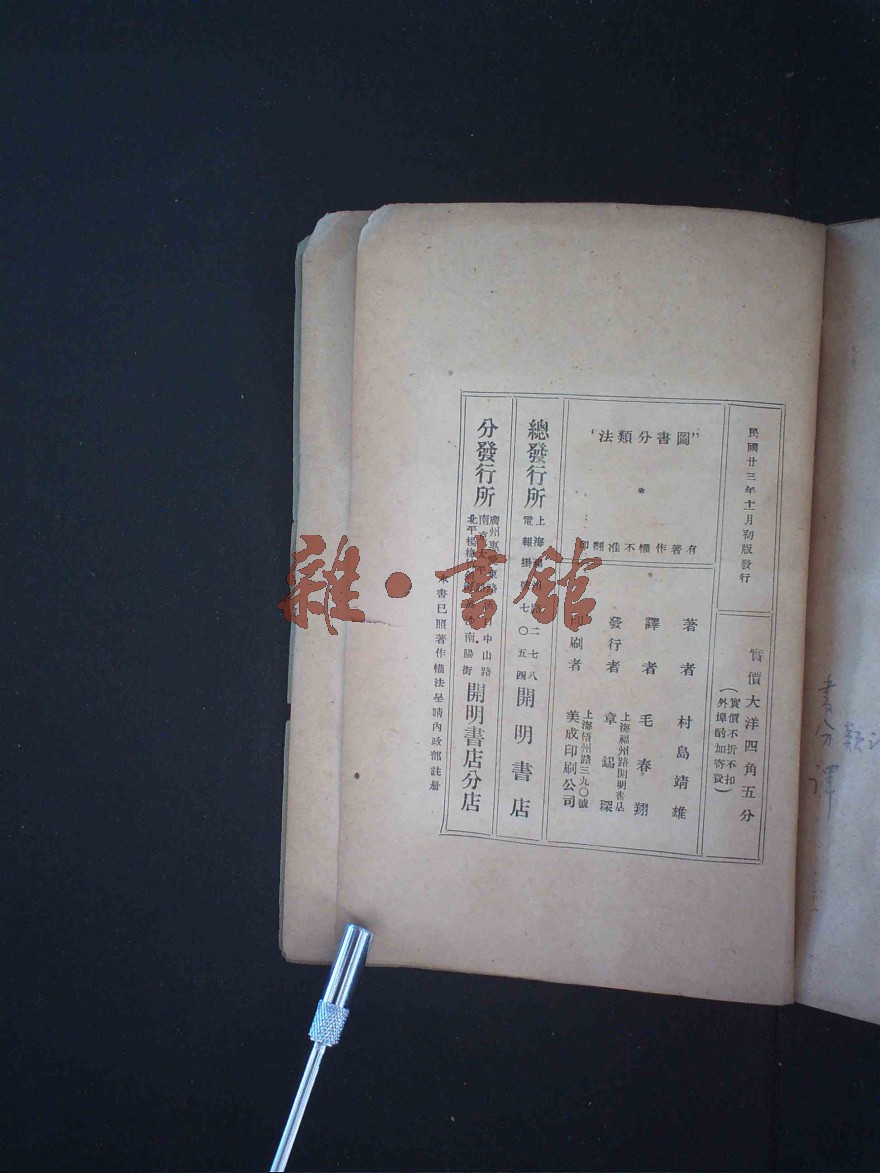 民國廿三年十一月初版發行
實價大洋四角五分
(實價不折不扣
外埠酌加寄費)
"圖書分類法"
有著作權不准翻印
著者 村島靖雄
譯者 毛春翔
發行者 上海福州路開明書店
章錫琛
印刷者 上海梧州路三九〇號
美成印刷公司
總發行所 上海福州路二七八
電報掛號七〇五四
開明書店
分發行所 廣州惠
南京太平路 中山路
北平楊梅 南陽街
開明書店分店
本書已照著作權法呈請內政部註冊
雜·書館
書分類
譯